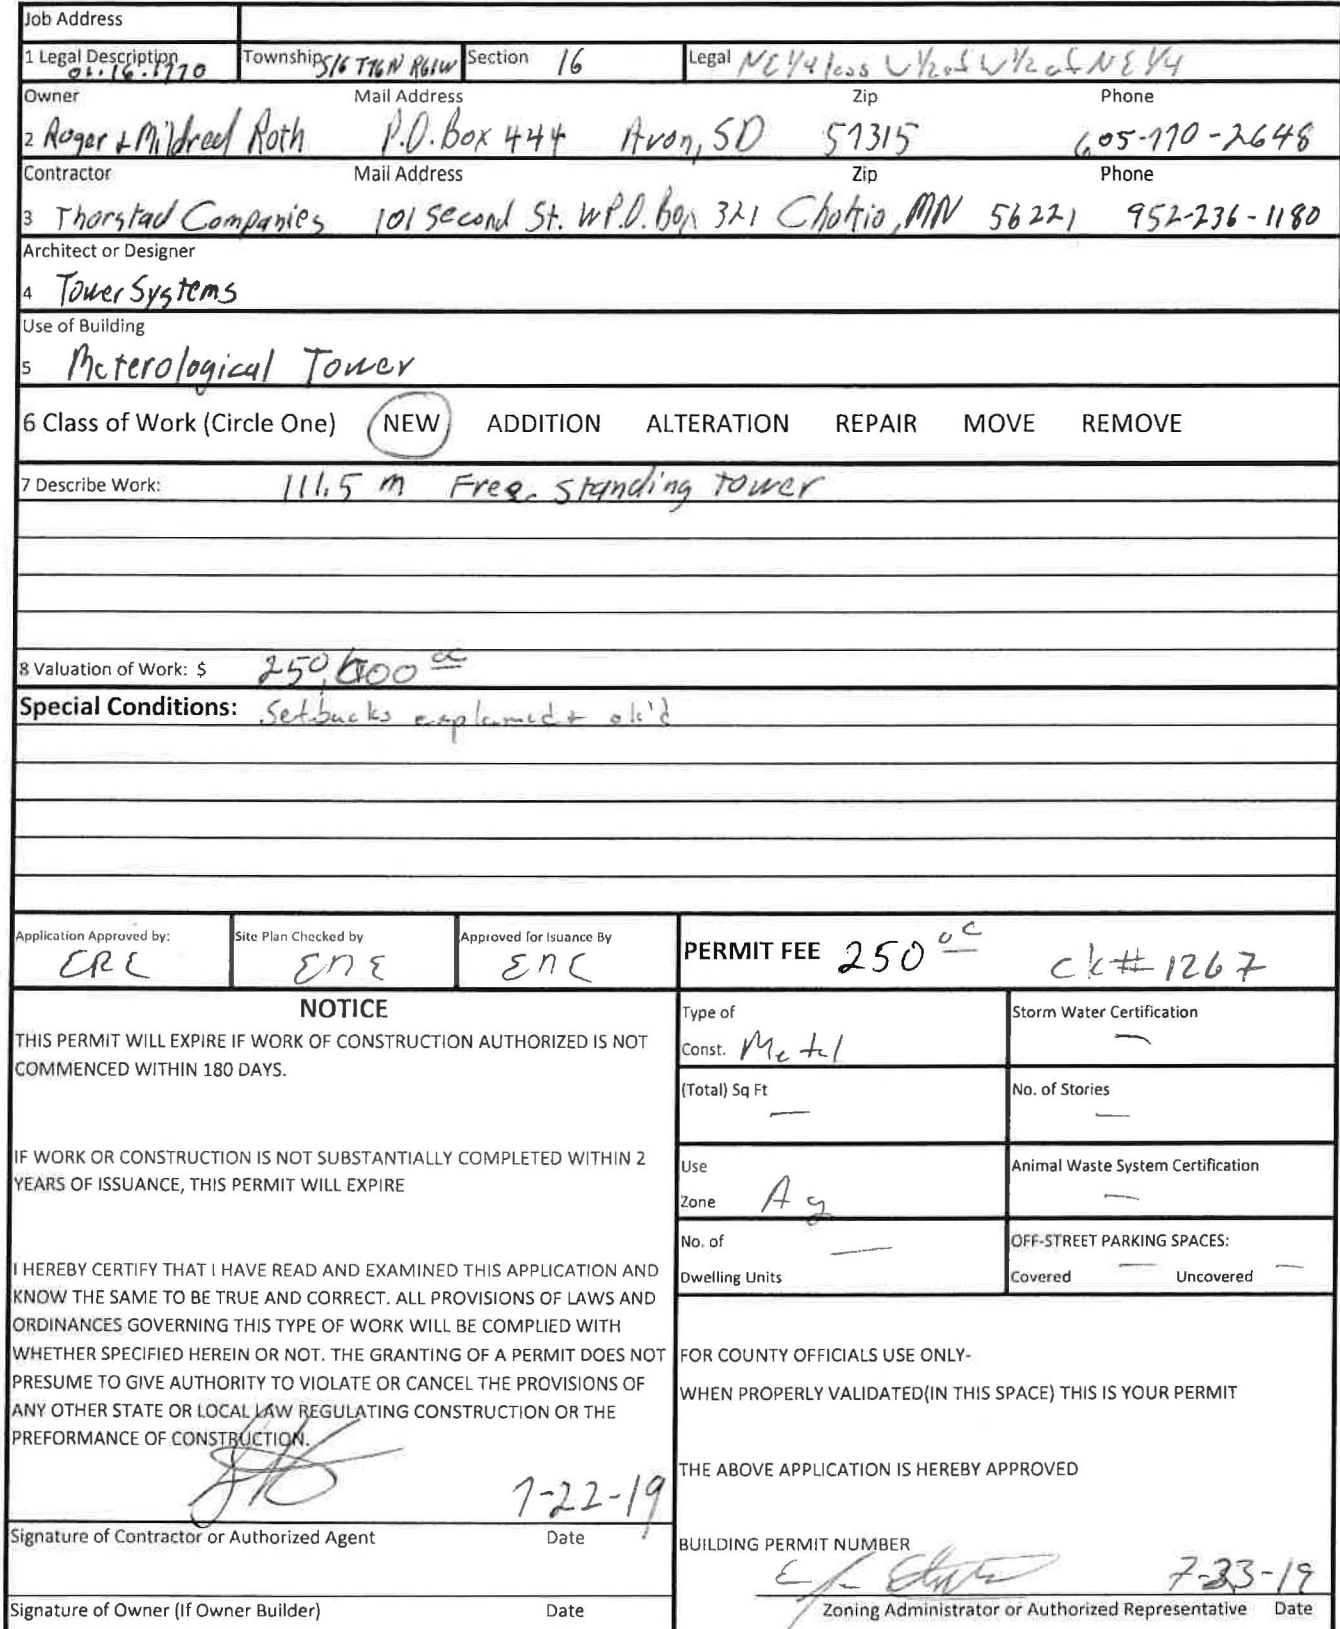 Job Address
1 Legal Description 01.16.1770 Township S16 T96N R61W Section 16 Legal NE1/4 less W1/2 of W1/2 of NE1/4
Owner Mail Address Zip Phone
2 Roger & Mildred Roth P.O. Box 444 Avon, SD 57315 605-770-2648
Contractor Mail Address Zip Phone
3 Thorstad Companies 101 Second St. W P.O. Box 321 Chokio, MN 56221 952-236-1180
Architect or Designer
4 Tower Systems
Use of Building
5 Meterological Tower
6 Class of Work (Circle One) NEW ADDITION ALTERATION REPAIR MOVE REMOVE
7 Describe Work: 111.5 m Free standing tower
8 Valuation of Work: $ 250,000 00
Special Conditions: Setbacks explained + ok'd
Application Approved by: Site Plan Checked by Approved for Isuance By
PERMIT FEE 250 00 ck# 1267
NOTICE
THIS PERMIT WILL EXPIRE IF WORK OF CONSTRUCTION AUTHORIZED IS NOT
COMMENCED WITHIN 180 DAYS.
IF WORK OR CONSTRUCTION IS NOT SUBSTANTIALLY COMPLETED WITHIN 2
YEARS OF ISSUANCE, THIS PERMIT WILL EXPIRE
I HEREBY CERTIFY THAT I HAVE READ AND EXAMINED THIS APPLICATION AND
KNOW THE SAME TO BE TRUE AND CORRECT. ALL PROVISIONS OF LAWS AND
ORDINANCES GOVERNING THIS TYPE OF WORK WILL BE COMPLIED WITH
WHETHER SPECIFIED HEREIN OR NOT. THE GRANTING OF A PERMIT DOES NOT
PRESUME TO GIVE AUTHORITY TO VIOLATE OR CANCEL THE PROVISIONS OF
ANY OTHER STATE OR LOCAL LAW REGULATING CONSTRUCTION OR THE
PREFORMANCE OF CONSTRUCTION.
7-22-19
Signature of Contractor or Authorized Agent Date
Signature of Owner (If Owner Builder) Date
Type of
Const. Metal
Storm Water Certification —
(Total) Sq Ft —
No. of Stories —
Use
Zone Ag
Animal Waste System Certification —
No. of —
Dwelling Units
OFF-STREET PARKING SPACES:
Covered — Uncovered —
FOR COUNTY OFFICIALS USE ONLY-
WHEN PROPERLY VALIDATED(IN THIS SPACE) THIS IS YOUR PERMIT
THE ABOVE APPLICATION IS HEREBY APPROVED
BUILDING PERMIT NUMBER
7-23-19
Zoning Administrator or Authorized Representative Date